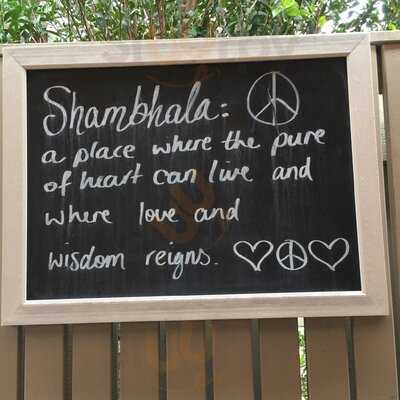 Shambhala:
a place where the pure
of heart can live and
where love and
wisdom reigns.